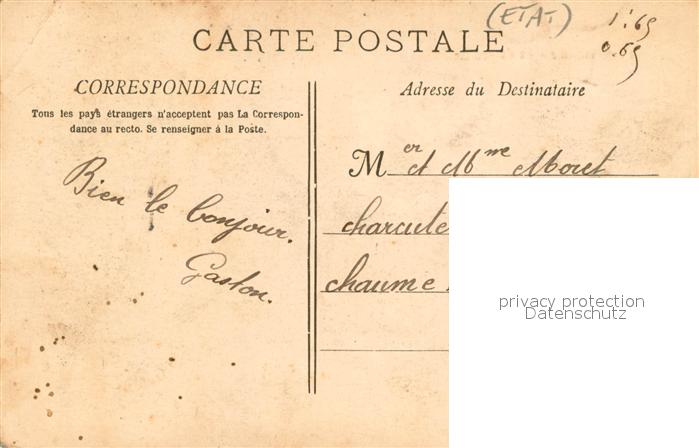 (ETAT)
1.65
0.65
CARTE POSTALE
CORRESPONDANCE
Tous les pays étrangers n'acceptent pas La Correspon-
dance au recto. Se renseigner à la Poste.
Bien le bonjour.
Gaston.
Adresse du Destinataire
Mer et Mme Moret
charcute
chaume
privacy protection
Datenschutz